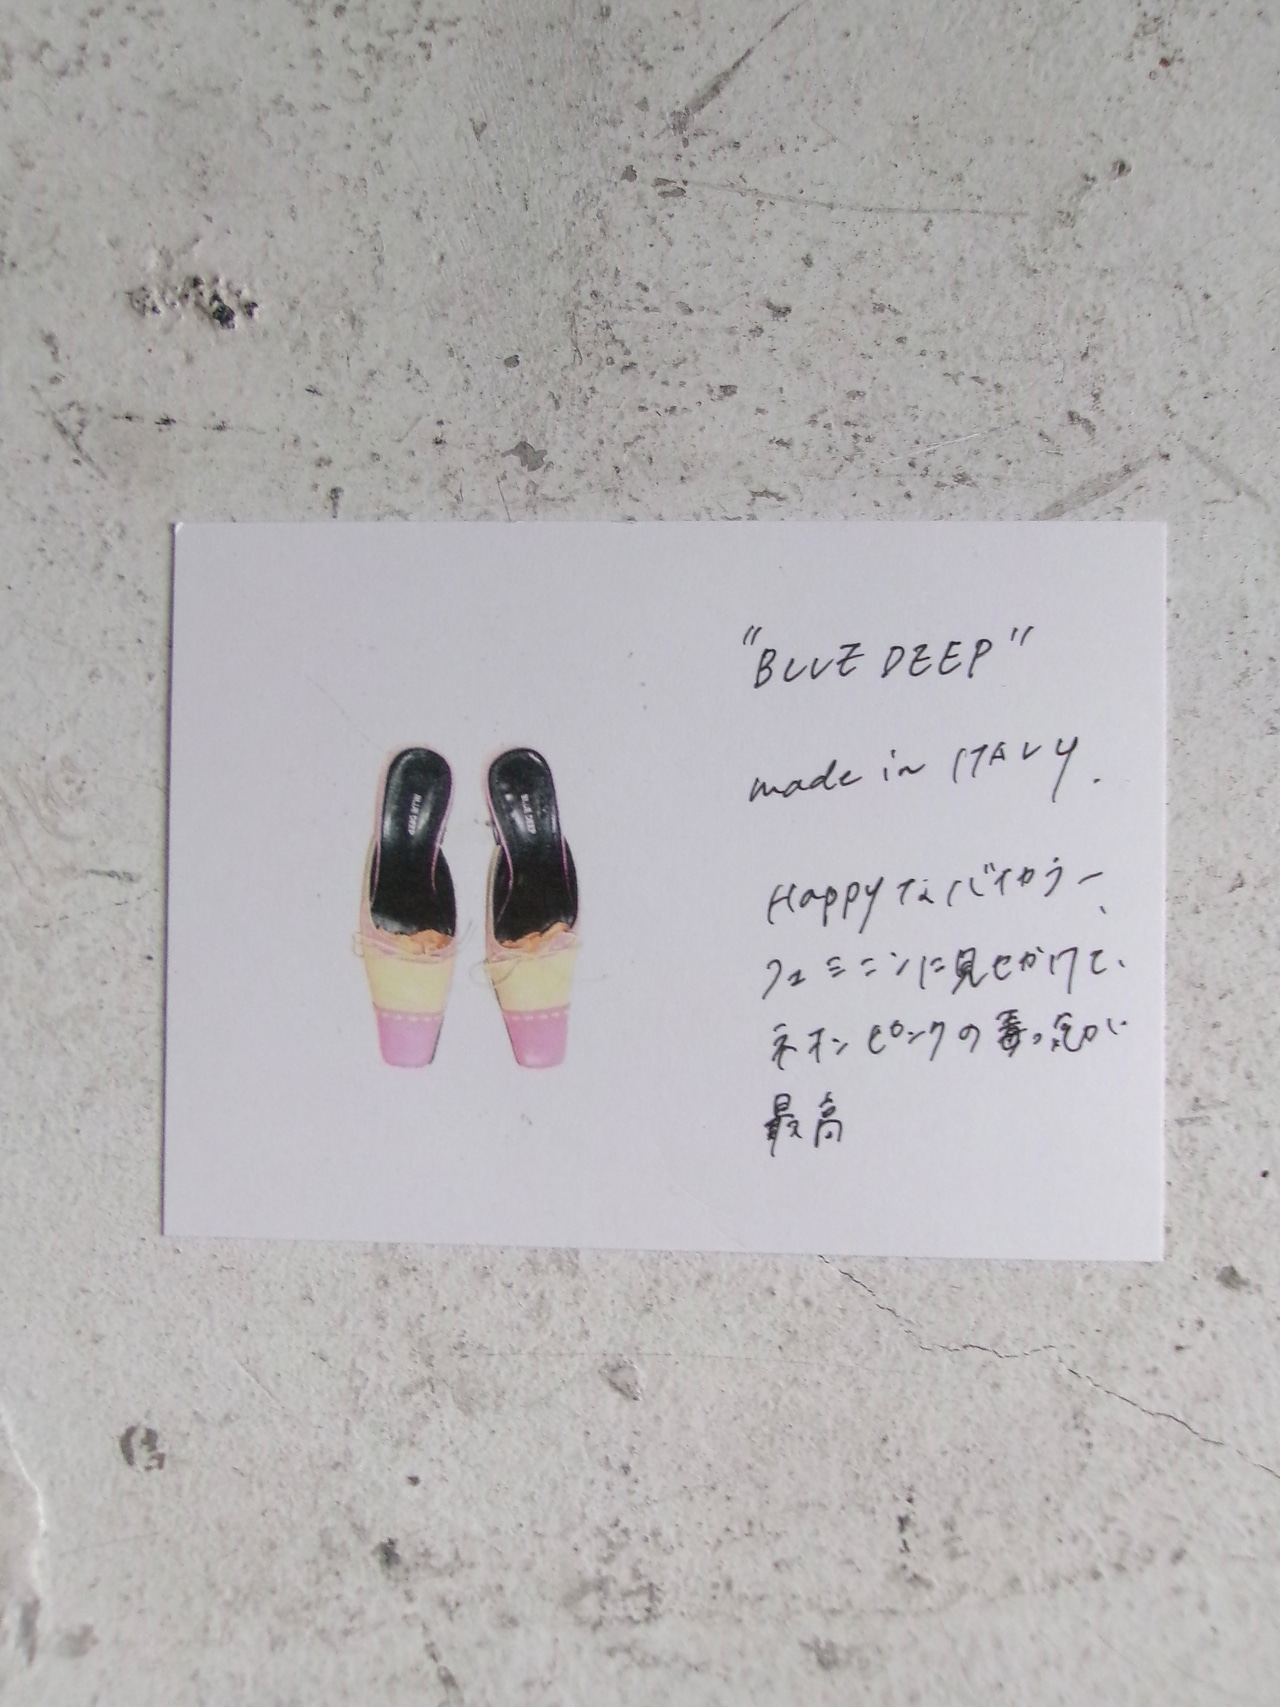 BLUE DEEP
BLUE DEEP
"BLUE DEEP"
made in ITALY.
Happyなバイカラー、
フェミニンに見せかけて、
ネオンピンクの毒っ気が
最高